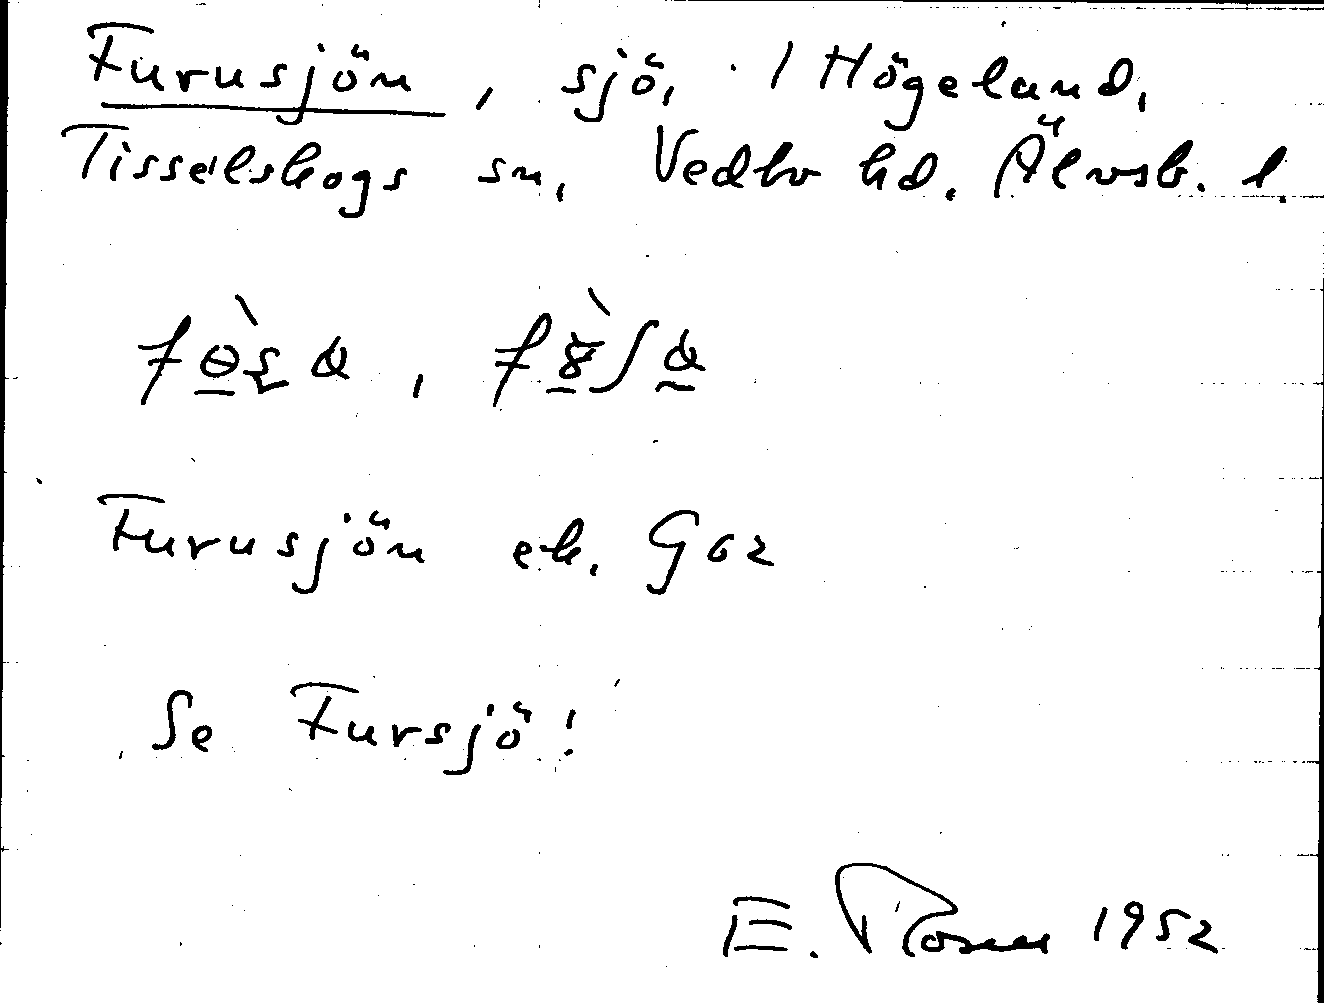 Furusjön, sjö, 1 Högeland,
Tisselskogs sn, Vedbo hd. Älvsb. l.
Furusjön ek. G02
Se Fursjö!
E. Rosell 1952